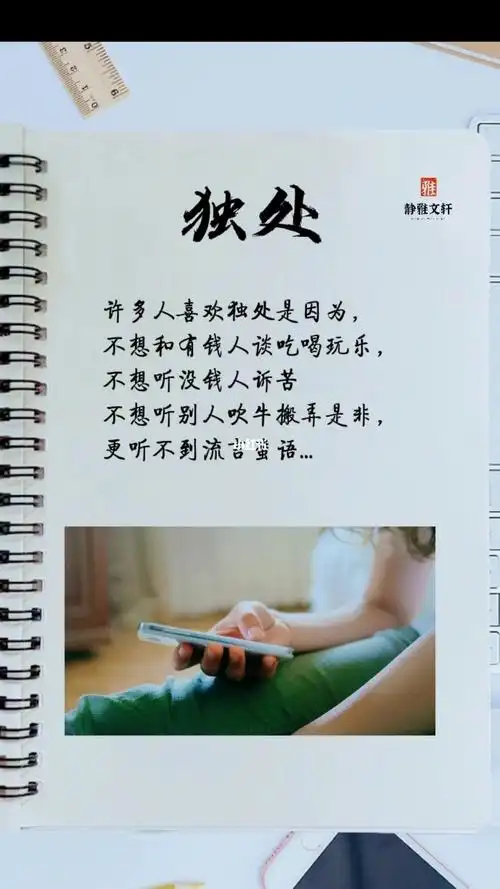 独处
雅
静雅文轩
许多人喜欢独处是因为，
不想和有钱人谈吃喝玩乐，
不想听没钱人诉苦
不想听别人吹牛搬弄是非，
更听不到流言蜚语...